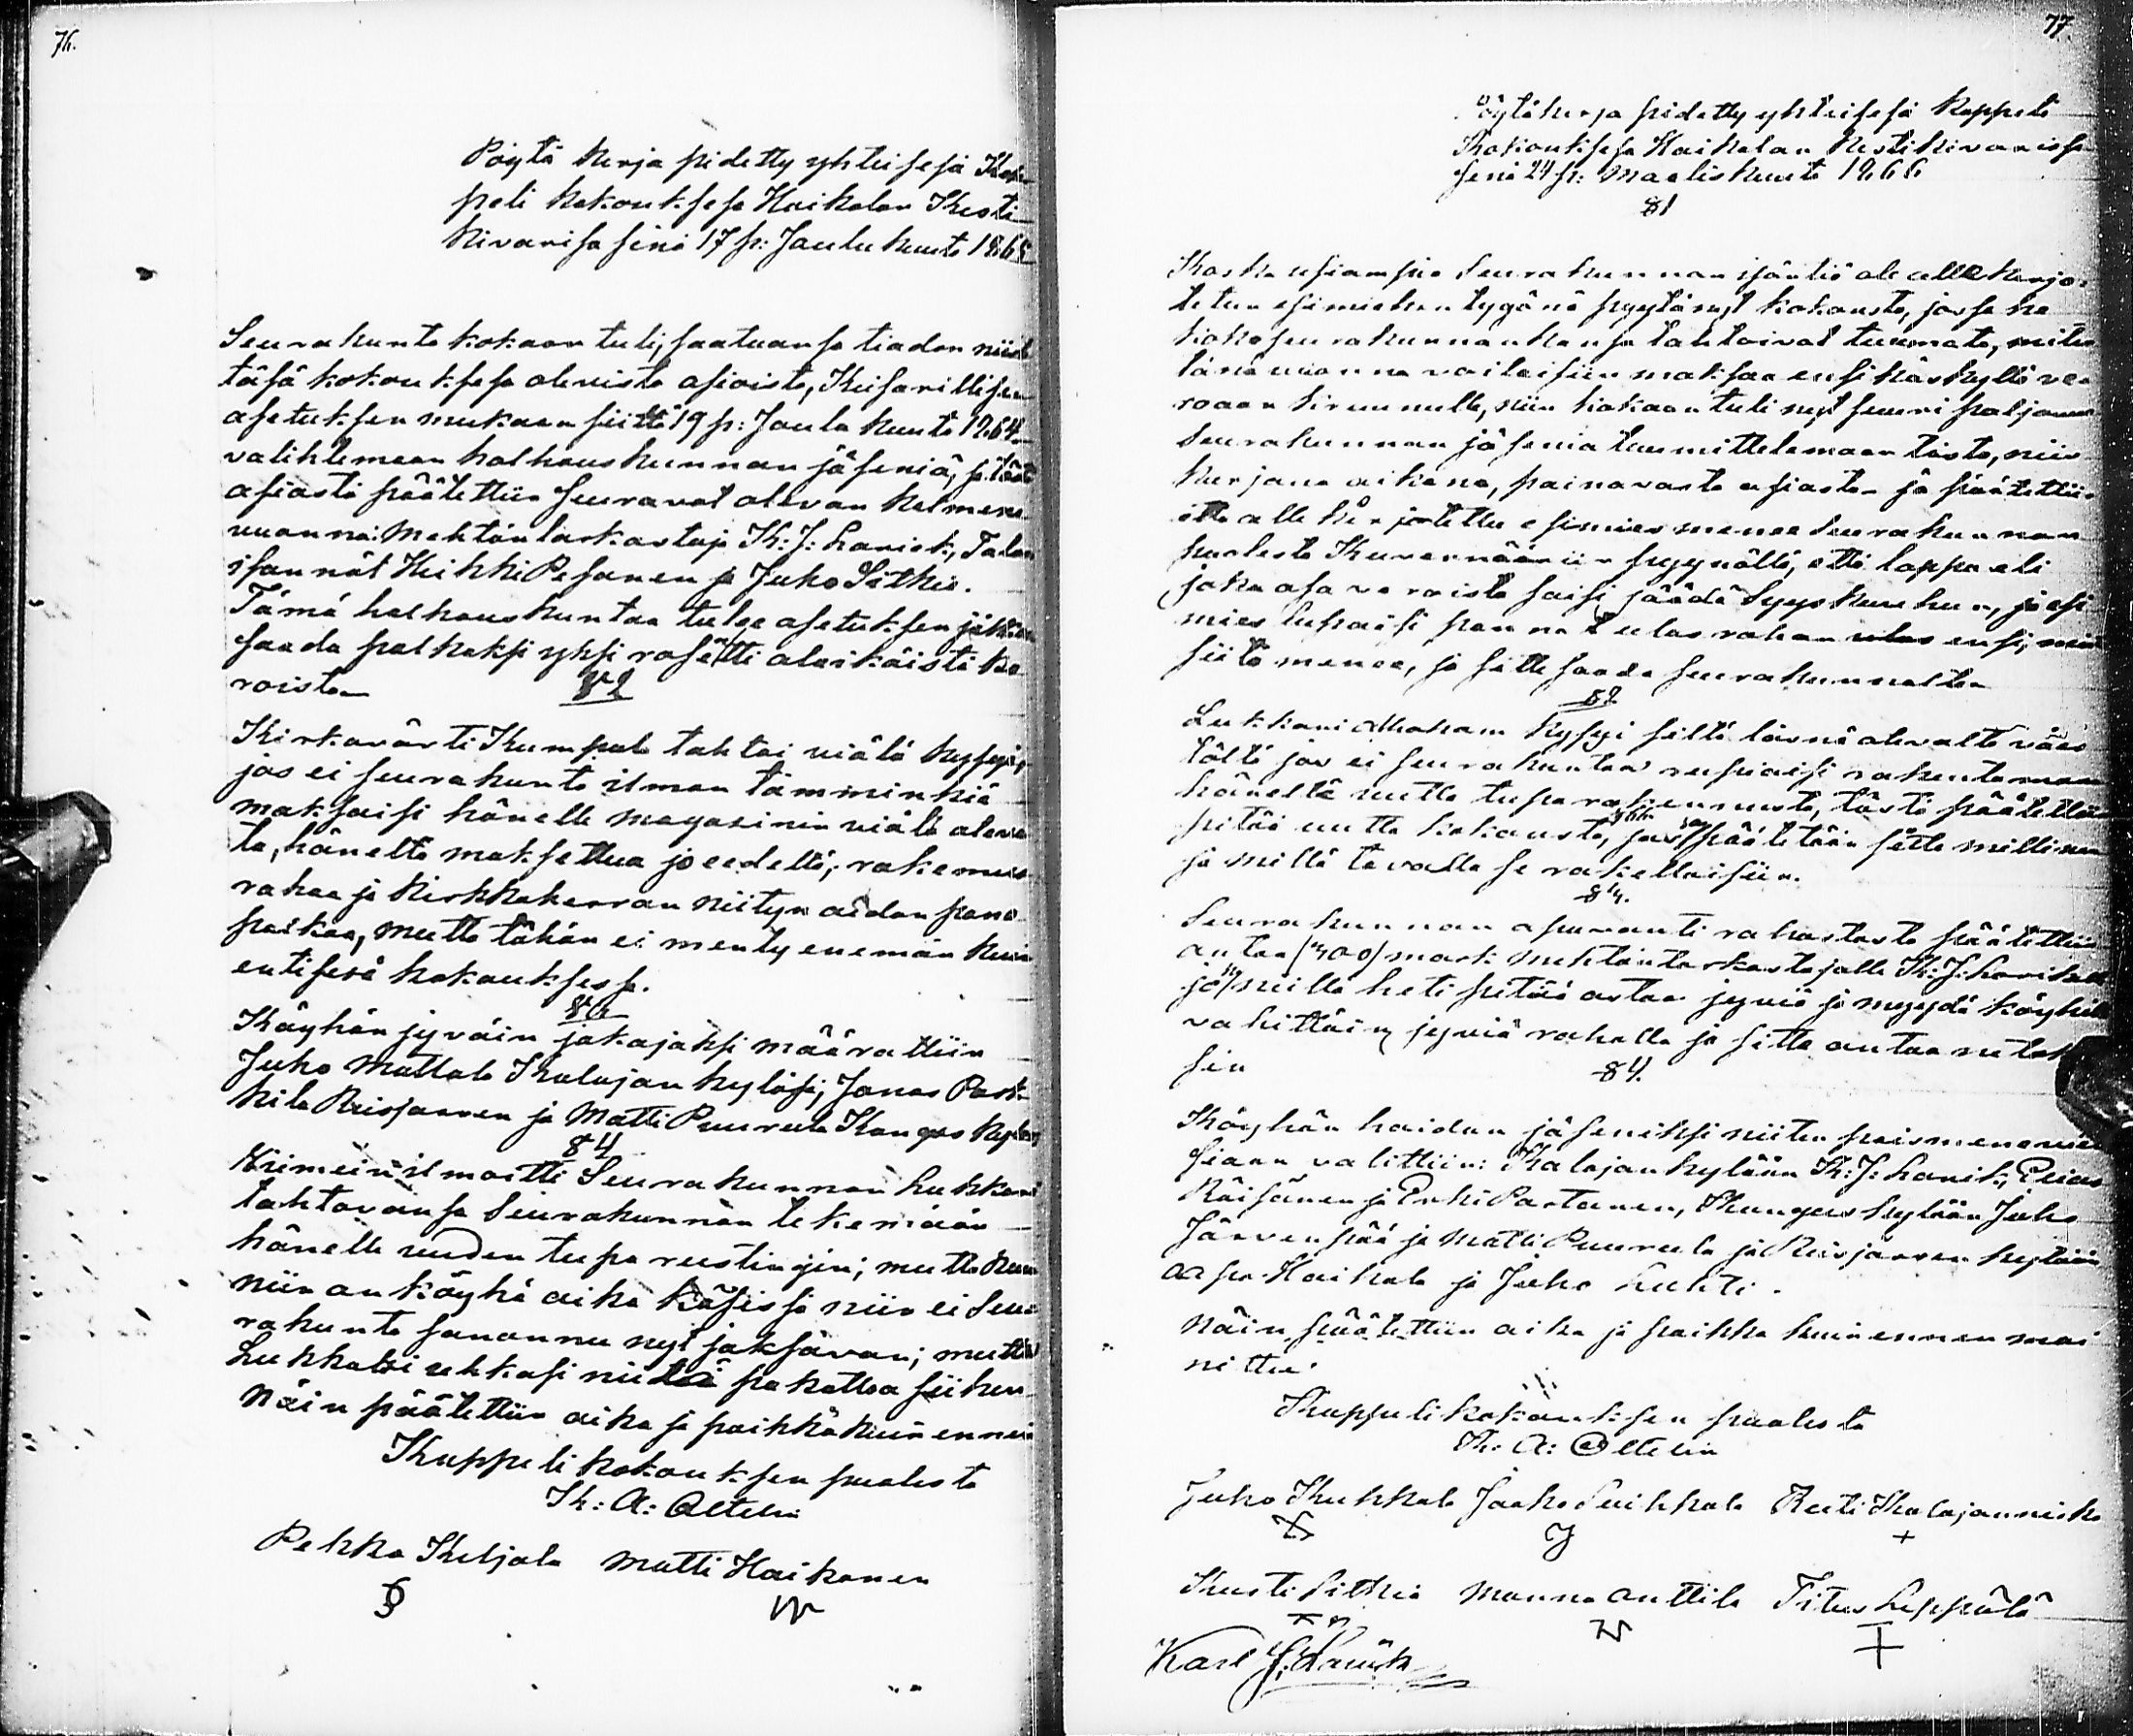 76.
Pöytä kerja pidetty yhteisesä Kap
peli kokouksesa Haikolan Kesti
kivarisa sinä 17 p: Joulu kuuta 1865
Seurakunta kokoon tuli, saatuansa tiedon niistä
täsä kokouksesa olevista asioista, Keisarillisen
asetuksen mukaan siittä 19 p: Joulu kuuta 1864
valihtemaan holhouskunnan jäseniä, ja tästä
asiasta päätettiin seuravat olevan kolmena
vuonna: Mehtäntarkastaja K: J: Lanick, Talon
isännät Heikki Pesonen ja Juho Sitkiä.
Tämä holhouskuntaa tulee asetuksen jälkeen
saada palkaksi yksi rosetti alaikäistä ka
roista
§ 2
Kirkavärti Kumpula tahtoi viälä kysyä,
jos ei seurakunta ilman tämminkiä
maksaisi hänelle magasinin viälä oleva
ta, häneltä maksettua jo edeltä, rakennus
rahaa ja Kirkkoherran niityn aidan pano
palkaa, mutta tähän ei menty enemän kuin
entisesä kokouksessa.
§ 3
Köyhän jyväin jakajaksi määrattiin
Juho Mattala Kalajan kyläsä, Jonas Park
kila Reisjärven ja Matti Puurula Kangas kylän
§ 4
Viimein ilmoitti Seurakunnan Lukkari
tahtovansa Seurakunnan tekemään
hänelle uuden tupa rustingin; mutta kuin
niin on köyhä aika käsissä niin ei Seu
rakunta sanonnu nyt jaksavan; mutta
Lukkari uhkasi niitä pakottaa siihen
Näin päätettiin aika ja paikka kuin ennen
Kappeli kokouksen puolesta
K: A: Oltelin
Pekka Keljala Matti Haikonen
77.
Pöytäkerja pidetty yhteisesä Kappeli
Kokouksesa Haikolan Kestikivarissa
senä 24 p: Maaliskuuta 1866
§ 1
Koska usiampia Seurakunnan isäntiä ole allekerjo
tetun esimiehen tygönä pyytänyt kokousta, josa he
koko seurakunnan kansa tahtoivat tuumata, miten
tänä vuonna voitaisiin maksaa ensi käskyllä ve
roaan kruunulle, niin kokoon tuli nyt suuri paljous
Seurakunnan jäseniä tuumittelemaan tästä, niin
kurjana aikana, painavasta asiasta ja päätettiin
että alle kerjotettu esimies menee Seurakunnan
puolesta Kuvernöörin pyynöllä, että loppu eli
jaka osa veroista saisi jäädä Syyskuuhun, ja esi
mies lupaisi panna ulos rahan ensi, mitä
siitä menee, ja sitte saada seurakunnalta
§ 2
Lukkari Abraham kysyi siltä läsnä olevalta väes
tältä jos ei seurakuntaa rupiaisi rakentamaan
hänellä uutta tupa rakennusta, tästä päätettiin
pitää uutta kokousta, josa päätetään sitte millinen
ja millä tavalla se rakettaisiin.
§ 3.
Seurakunnan apuvanti rahastasta päätettiin
antaa (400) mark mehtäntarkastajalle K: J: Lanickill
ja niillä heti pitää astaa jyviä ja myydä köyhill
vahittäin jyviä rahalla ja sitte antaa ne tak
sin
§ 4.
Köyhän hoidon jäseniksi niiten poismenevien
siaan valittiin: Kalajan kylään K: J: Lanick, Elias
Räisänen ja Erki Partanen, Kangas kylään Juho
Järvenpää ja Matti Puurula ja Reisjärven kylään
Aapo Haikola ja Juho Luhti.
Näin päätettiin aika ja paikka kuin ennen mai
nittu.
Kappeli kokouksen puolesta
K: A: Oltelin
Juho Kukkola Jaako Suikkola Ruti Kalajannisko
Kusti Sitkiä Manna Anttila Titus Leppälä
Karl J. Lanick